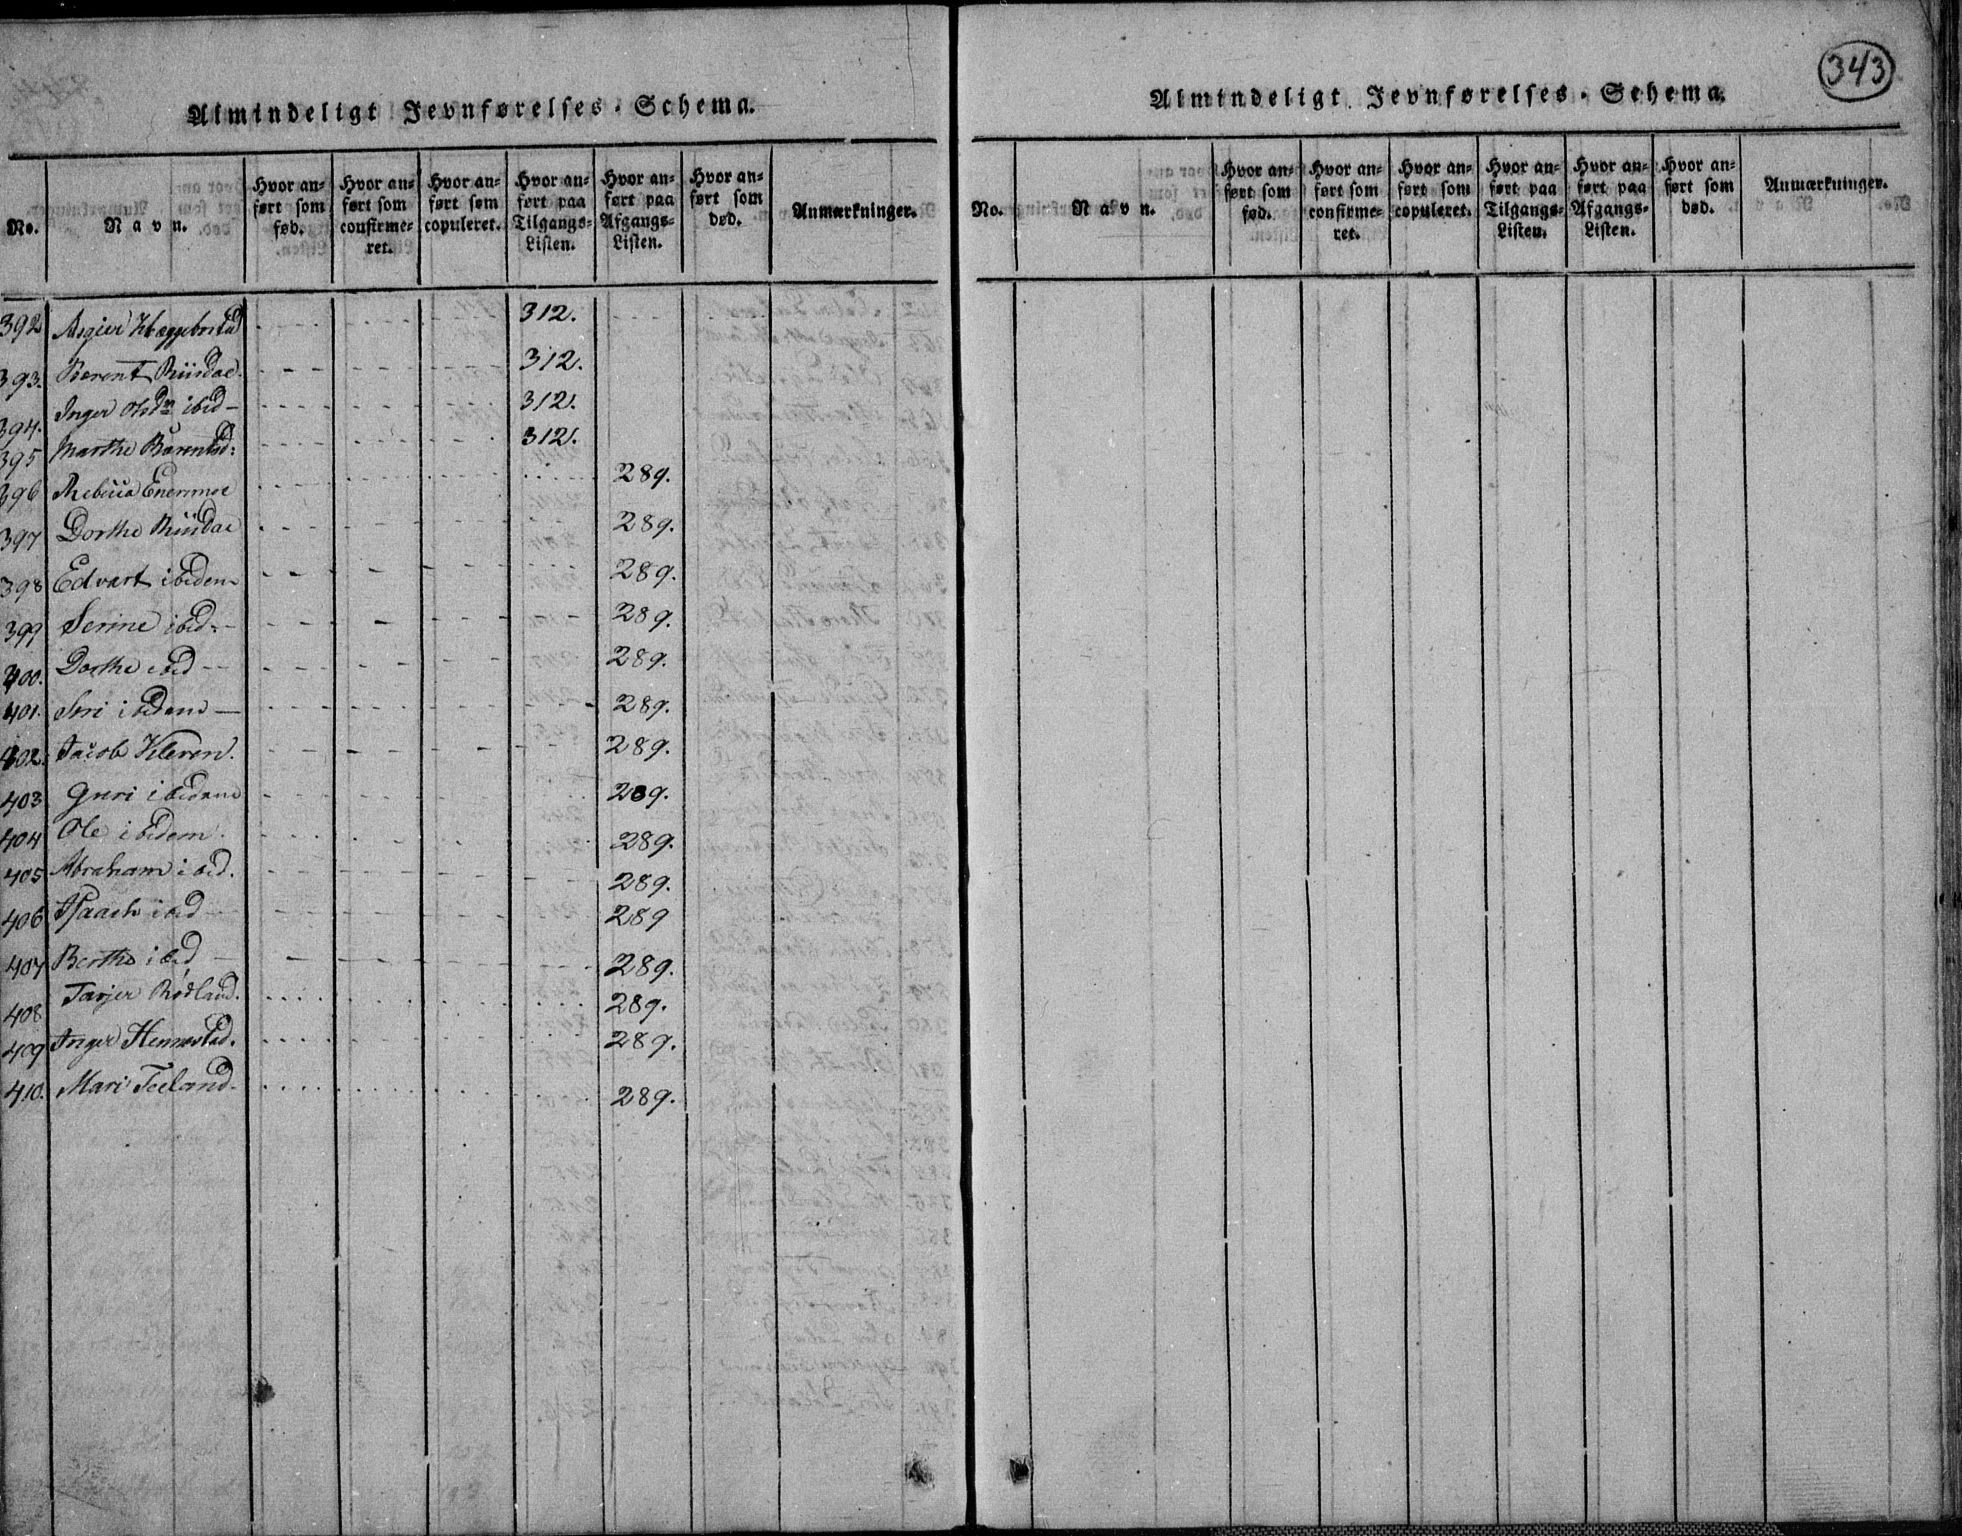 Almindeligt Jevnførelses-Schema.
No. Navn. Hvor anført som fød. Hvor anført som confirmeret. Hvor anført som copuleret. Hvor anført paa Tilgangs-Listen. Hvor anført paa Afgangs-Listen. Hvor anført som død. Anmærkninger.
392 Asgier Hæggebostad 312.
393. Berent Riisdal. 312.
394. Inger Olsdr ibid — 312.
395 Marthe Bærentsd: 312.
396 Rebecca Enermoe 289.
397 Dorthe Riisdal 289.
398 Edvart ibidem 289.
399 Serine ibid. 289.
400. Dorthe ibid 289.
401. Siri ibidem — 289.
402. Jacob Kleven. 289.
403 Guri ibidem 289.
404 Ole ibidem. 289.
405 Abraham ibid. 289.
406 Isaach ibid 289
407 Berthe ibid 289.
408 Tarjer Rødland. 289.
409 Inger Hennestad. 289.
410. Mari Teeland. 289.
343
Almindeligt Jevnførelses-Schema.
No. Navn. Hvor anført som fød. Hvor anført som confirmeret. Hvor anført som copuleret. Hvor anført paa Tilgangs-Listen. Hvor anført paa Afgangs-Listen. Hvor anført som død. Anmærkninger.